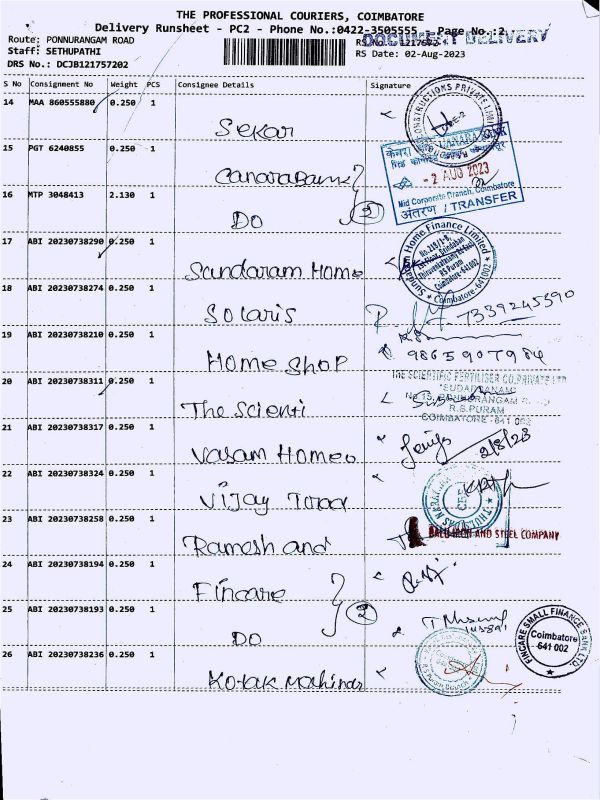 THE PROFESSIONAL COURIERS, COIMBATORE
Delivery Runsheet - PC2 - Phone No.:0422-3505555 Page No.:2
DOCUMENT DELIVERY
Route: PONNURANGAM ROAD
Staff: SETHUPATHI
RS Date: 02-Aug-2023
DRS No.: DCJB121757202
S No Consignment No Weight PCS Consignee Details Signature
14 MAA 860555880 0.250 1
Sekar
CONSTRUCTIONS PRIVATE LIMITED
15 PGT 6240855 0.250 1
CanaraBank
CANARA BANK
- 2 AUG 2023
Mid Corporate Branch, Coimbatore
अंतरण / TRANSFER
16 MTP 3048413 2.130 1
DO
2
17 ABI 20230738290 0.250 1
Sundaram Home
Sundaram Home Finance Limited
Coimbatore-641 002
18 ABI 20230738274 0.250 1
Solaris
7339245390
19 ABI 20230738210 0.250 1
Home Shop
9865907984
20 ABI 20230738311 0.250 1
The Scienti
THE SCIENTIFIC FERTILISER CO.PRIVATE LTD
"SUDARSANAM"
R.S.PURAM
COIMBATORE - 641 002
21 ABI 20230738317 0.250 1
Vasam Homeo
2/8/23
22 ABI 20230738324 0.250 1
Vijay
23 ABI 20230738258 0.250 1
Ramesh and
BALU IRON AND STEEL COMPANY
24 ABI 20230738194 0.250 1
Fincare
25 ABI 20230738193 0.250 1
DO
2
FINCARE SMALL FINANCE BANK LTD.
Coimbatore
641 002
26 ABI 20230738236 0.250 1
Kotak Mahindr